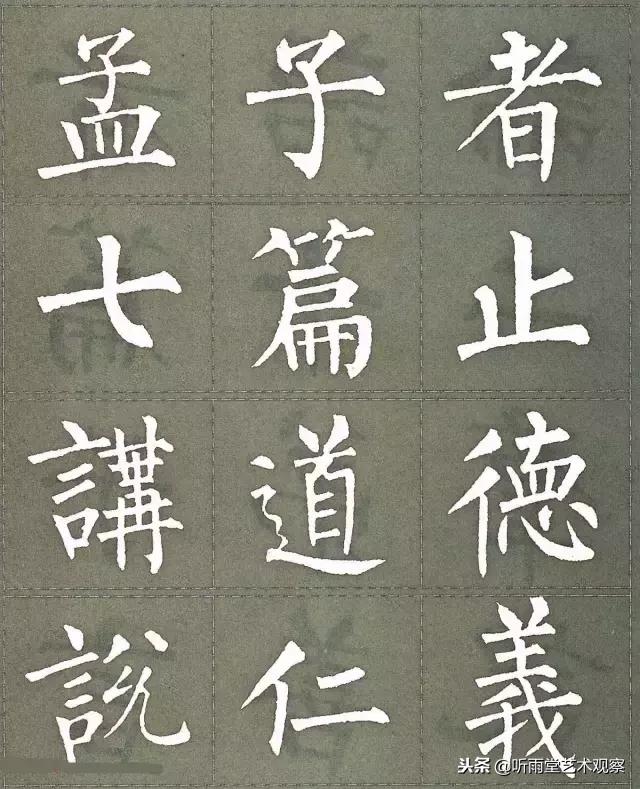 孟子者
七篇止
講道德
說仁義
头条 @听雨堂艺术观察